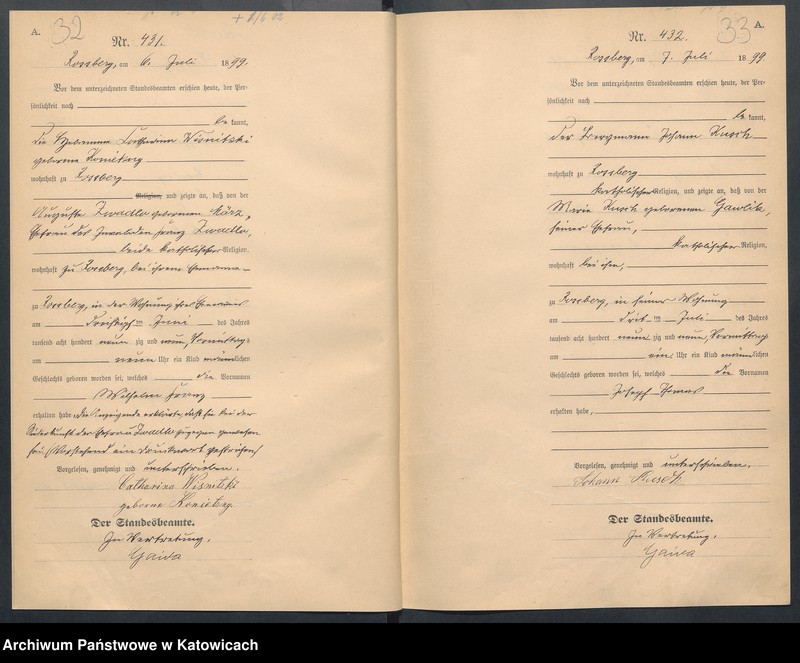 A. 32
Nr. 431.
Rossberg, am 6. Juli 1899.
Vor dem unterzeichneten Standesbeamten erschien heute, der Per-
sönlichkeit nach
be kannt,
die Hebamme Catharina Wisnitzki
geborene
wohnhaft zu Rossberg
Religion, und zeigte an, daß von der
Auguste Zwadlo geborenen März,
Ehefrau des Franz Zwadlo,
beide katholischer Religion,
wohnhaft zu Rossberg, bei ihrem Ehemanne
zu Rossberg, in der Wohnung ihres Ehemannes
am dreißigsten Juni des Jahres
tausend acht hundert neun zig und neun, Vormittags
um neun Uhr ein Kind männlichen
Geschlechts geboren worden sei, welches die Vornamen
Wilhelm Franz
erhalten habe, die Anzeigende erklärte, daß sie bei der
Niederkunft der Ehefrau Zwadlo zugegen gewesen
sei. (Vorstehend ein Druckwort gestrichen)
Vorgelesen, genehmigt und unterschrieben.
Catharina Wisnitzki
geborne
Der Standesbeamte.
In Vertretung.
Gaida
A. 33
Nr. 432.
Rossberg, am 7. Juli 1899.
Vor dem unterzeichneten Standesbeamten erschien heute, der Per-
sönlichkeit nach
be kannt,
der Bergmann Johann Kusch
wohnhaft zu Rossberg
katholischer Religion, und zeigte an, daß von der
Marie Kusch geborenen Gawlik,
seiner Ehefrau,
katholischer Religion,
wohnhaft bei ihm,
zu Rossberg, in seiner Wohnung
am Juli des Jahres
tausend acht hundert neun zig und neun, Vormittags
um ein Uhr ein Kind männlichen
Geschlechts geboren worden sei, welches die Vornamen
Joseph
erhalten habe,
Vorgelesen, genehmigt und unterschrieben.
Johann Kusch
Der Standesbeamte.
In Vertretung.
Gaida
Archiwum Państwowe w Katowicach